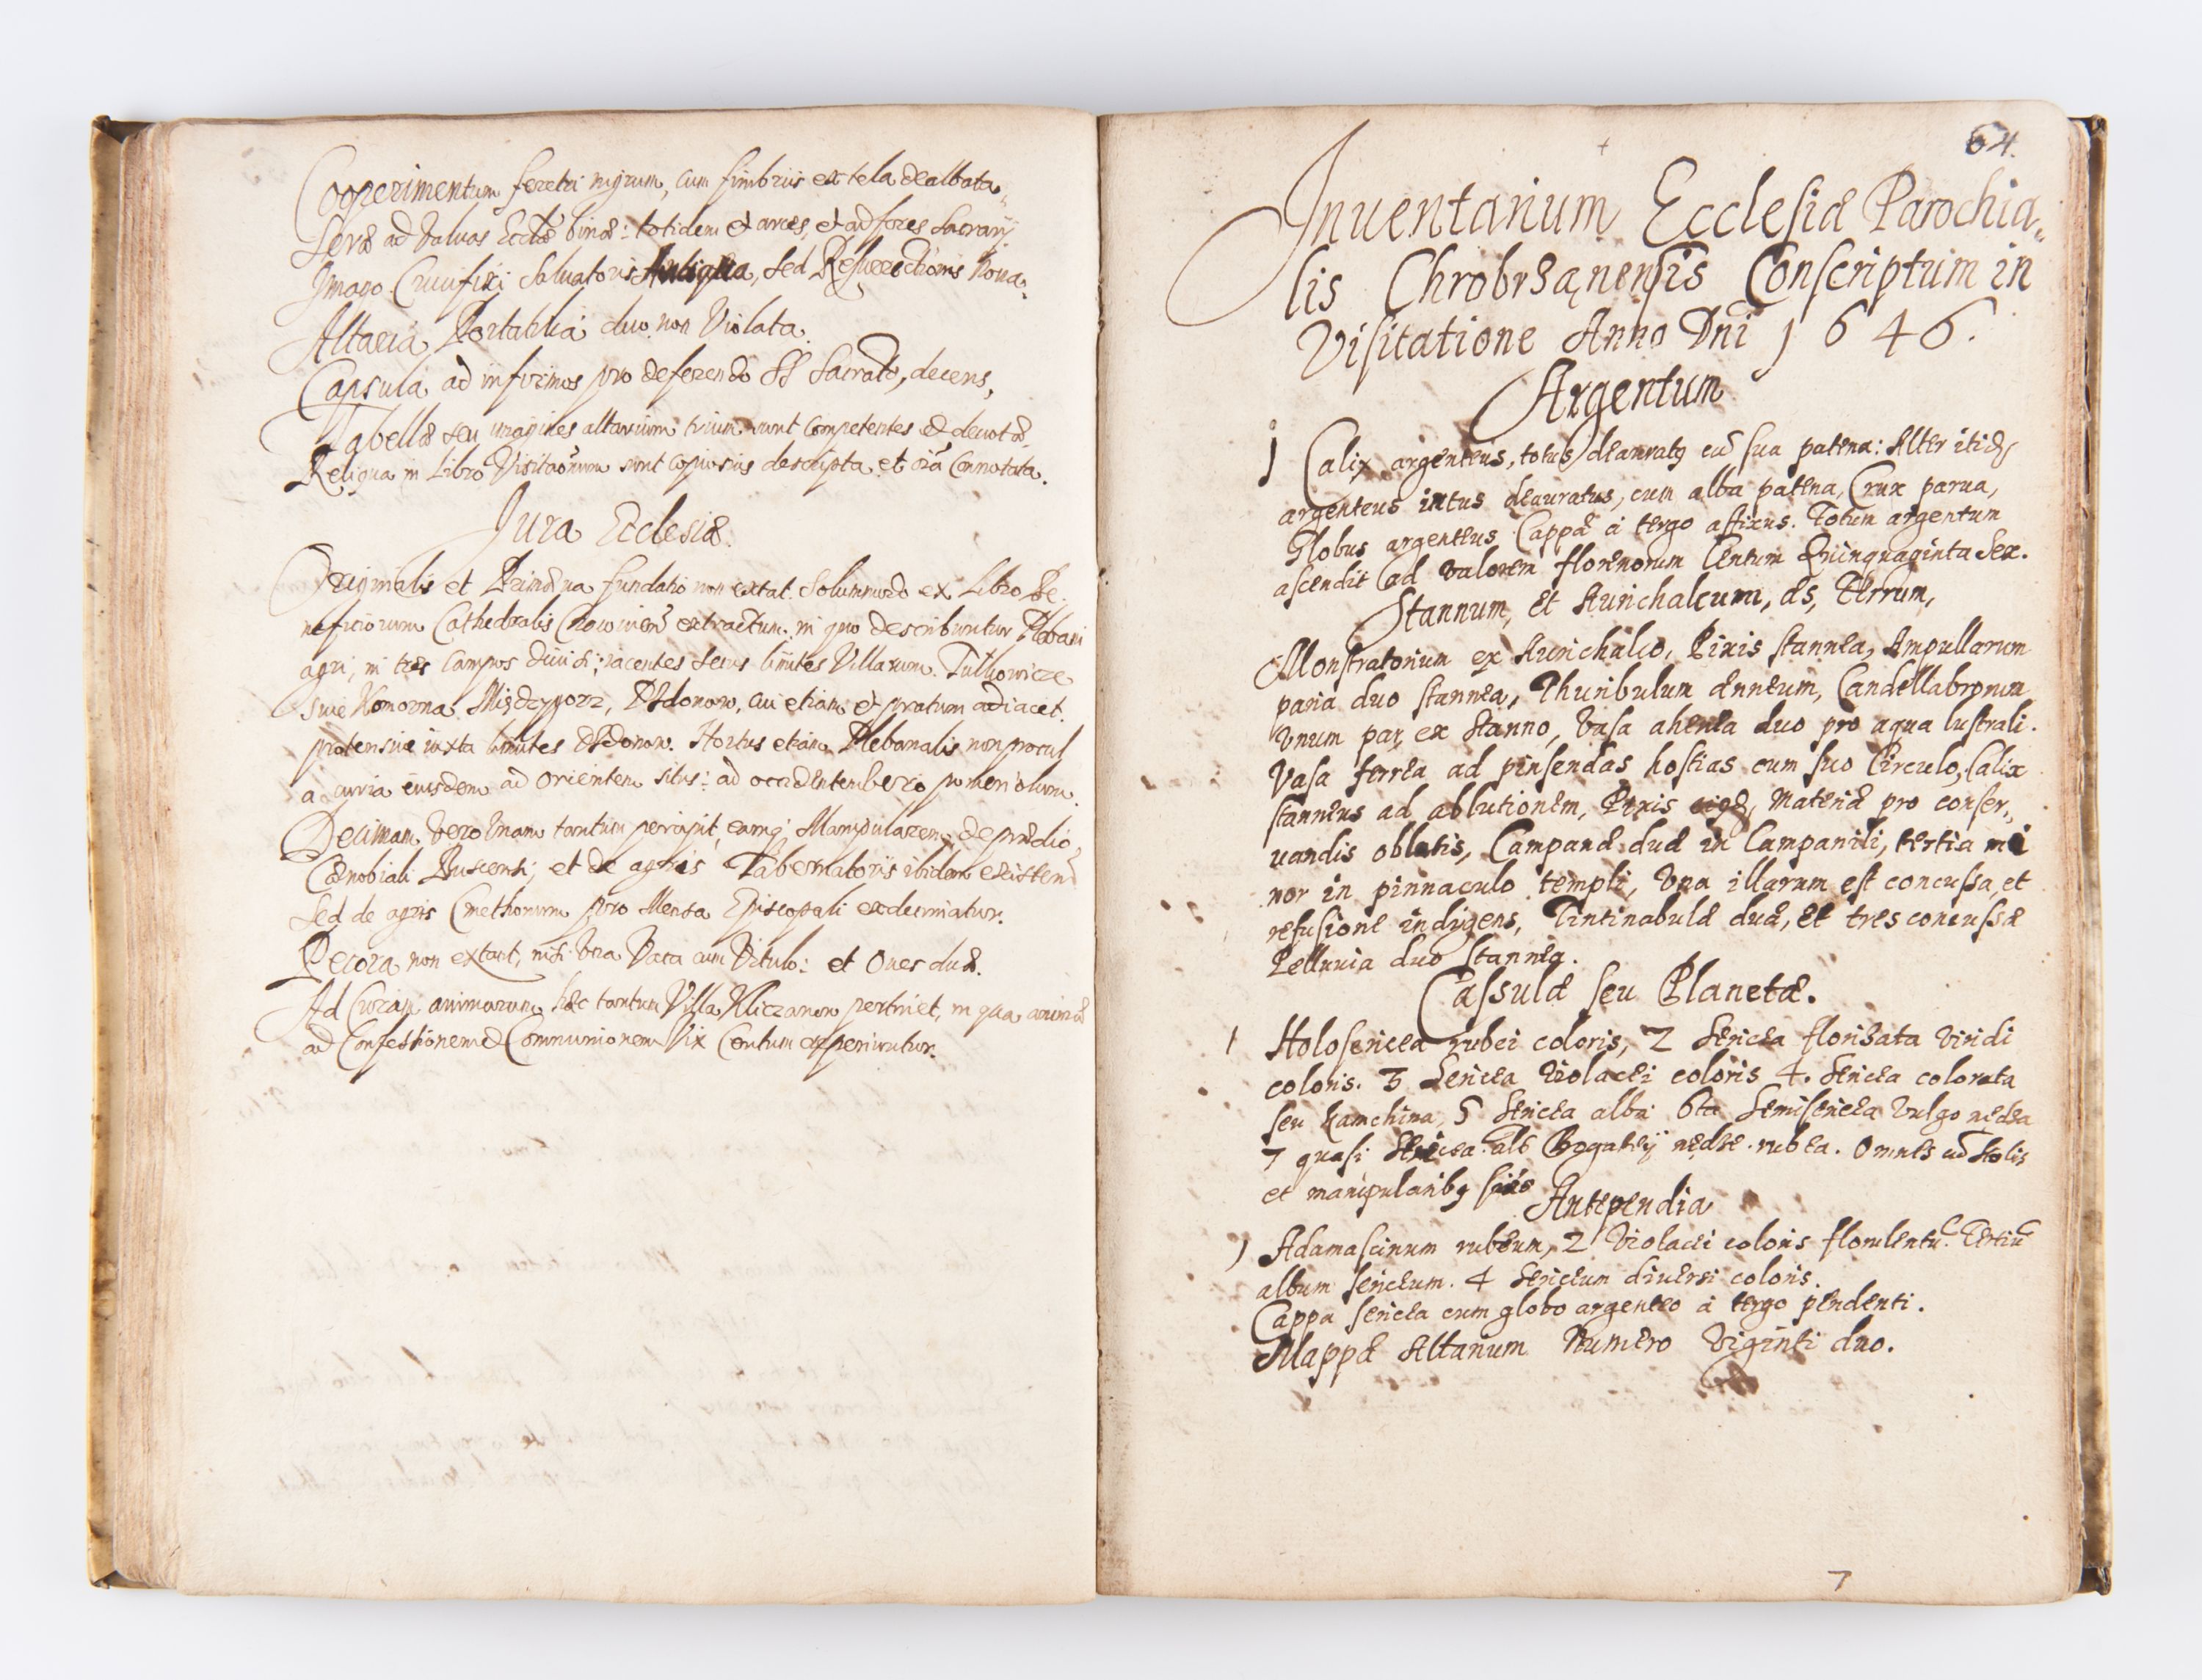 Cooperimentum feretri nigrum, cum fimbriis ex tela dealbata.
Seræ ad Valvas Eccłæ binæ: totidem et arces, et ad fores Sacrarij
Imago Crucifixi Saluatoris Antiqua, sed Resurrectionis noua.
Altaria Portabilia duo non Violata.
Capsula ad infirmos pro deferendo SS Sacrato, decens.
Tabellæ seu imagines altarium trium sunt competentes et deuotæ.
Reliqua in Libro Visitaoum sunt copiosius descripta et oia Connotata.
Jura Ecclesiæ.
Originalis et Primæua fundatio non extat. Solummodo ex Libro Be,
neficiorum Cathedralis extractum. in quo describuntur Plebani
agri, in tres Campos diuisi; iacentes secus limites Villarum.
siue Komorna Międzygorz, cui etiam et pratum adiacet.
protensiue iuxta limites Hortus etiam Plebanalis non procul
a curia eiusdem ad Orientem situs: ad occidentem vero pomeriolum.
Decimam vero Vnam tantum percipit, eamq; Manipularem, de prædio
Cænobiali et de agris Tabernatoris ibidem existen
Sed de agris Cmethonum pro Mensa Episcopali exdecimatur.
Pecora non extant, nisi Vna Vaca cum Vitulo: et Oues duæ.
Ad Curam animarum hæc tantum Villa pertinet, in qua animæ
ad Confessionem et Communionem Vix Centum reperiuntur.
64.
Inuentarium Ecclesiæ Parochia,
lis Chrobrzanensis Conscriptum in
Visitatione Anno Dni 1646.
Argentum
1 Calix argenteus, totus deauratq cu sua patena: Alter itidē
argenteus intus deauratus, cum alba patena, Crux parua,
Globus argenteus Cappæ à tergo affixus. Totum argentum
ascendit ad valorem florenorum Centum Quinquaginta Sex.
Stannum, et Aurichalcum, æs, Ferrum,
Monstratorium ex Aurichalco, Pixis stannea, Ampullarum
paria duo stannea, Thuribulum ænneum, Candellabrorum
Vnum par ex Stanno, Vasa ahenea duo pro aqua lustrali.
Vasa ferrea ad pinsendas hostias cum suo Circulo, Calix
stanneus ad ablutionem, Pixis Materiæ pro conser,
uandis oblatis, Campanæ duæ in Campanili, tertia mi
nor in pinnaculo templi, Vna illarum est concussa et
refusione indigens, Tintinabulæ duæ, et tres concussæ
Pelluuia duo stannea.
Casulæ seu Planetæ.
1 Holosericea rubei coloris, 2 Sericea florisata Viridi
coloris. 3 Sericea Violacei coloris 4. Sericea colorata
seu Kamchina 5 Sericea alba 6ta Semisericea Vulgo nedza
7 quasi Sericea als Bogatey nędze rubea. Omnes cū Stolis
et manipularibq suis
Antependia
1 Adamascinum rubeum, 2 Violacei coloris florulentū. Tertiū
album sericeum. 4 Sericeum diuersi coloris.
Cappa sericea cum globo argenteo à tergo pendenti.
Mappæ Altarium Numero Viginti duo.
7